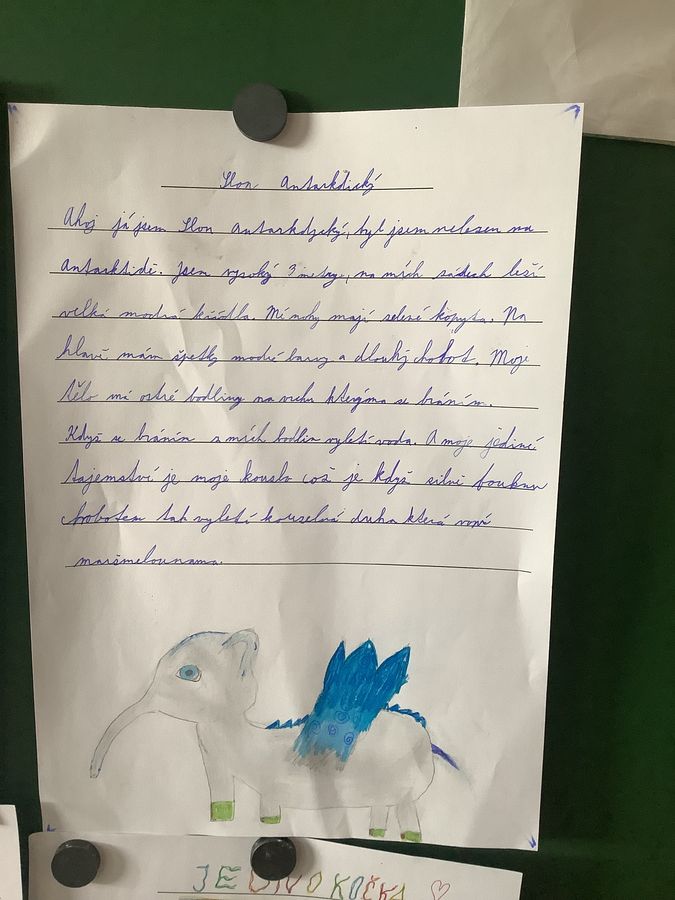 Slon Antarktický
Ahoj já jsem Slon Antarktický, byl jsem nalezen na
Antarktidě. Jsem vysoký 3 metry, na mích zádech leží
velká modrá křídla. Mé nohy mají zelené kopyta. Na
hlavě mám špetky modré barvy a dlouhý chobot. Moje
tělo má ostré bodliny na vrchu kterýma se bráním.
Když se bráním z mích bodlin vyletí voda. A moje jediné
tajemství je moje kouzlo což je když silně fouknu
chobotem tak vyletí kouzelná duha která voní
maršmelounama.
JEDNOKOČKA